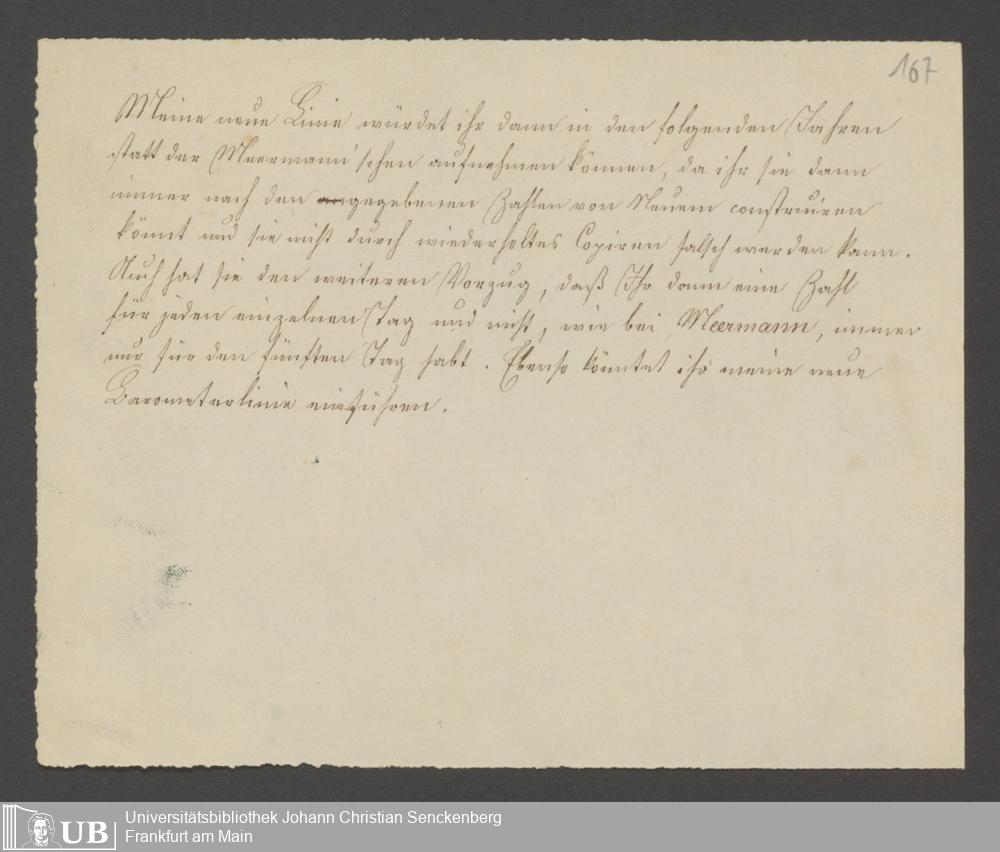 167
Meine neue Linie würdet ihr dann in den folgenden Jahren
statt der Meermann'schen aufnehmen können, da ihr sie dann
immer nach den angegebenen Zahlen von Neuem construiren
könnt und sie nicht durch wiederholtes Copiren falsch werden kann.
Auch hat sie den weiteren Vorzug, daß Ihr dann eine Zahl
für jeden einzelnen Tag und nicht, wie bei Meermann, immer
nur für den fünften Tag habt. Ebenso könntet ihr meine neue
Barometerlinie einführen.
UB
Universitätsbibliothek Johann Christian Senckenberg
Frankfurt am Main